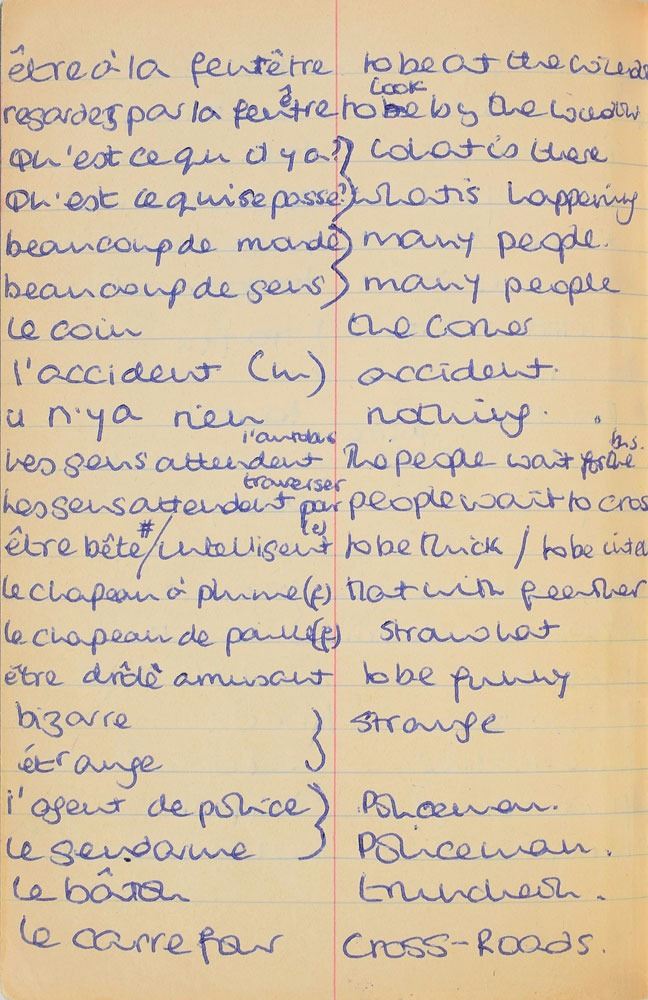 être à la fentêtre to be at the windo
regardez par la fenêtre to look by the window
Qu'est ce qu il y a? } what is there
Qu'est ce qui se passe? } what is happening
beaucoup de monde } many people.
beaucoup de gens } many people
le coin the corner
l'accident (m) accident.
il n'y a rien nothing.
Les gens attendent l'autobus The people wait for the bus.
Les gens attendent par traverser people wait to cros
être bête / intelligent (e) to be thick / to be intel
le chapeau à plume (f) Hat with feether
le chapeau de paille (f) straw hat
être drôlê amusant to be funny
bizarre } strange
étrange
l'agent de police } Policeman.
le gendarme } Policeman.
le bâton truncheon.
le carrefour Cross-Roads.